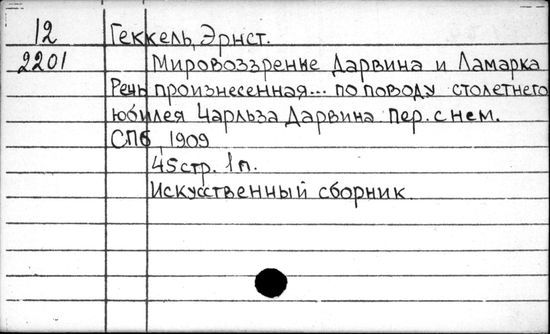 12 Геккель, Эрнст.
2201 Мировоззрение Дарвина и Ламарка
Речь произнесенная... по поводу столетнего
юбилея Чарльза Дарвина. Пер. с нем.
СПб, 1909
45 стр. 1 п.
Искусственный сборник